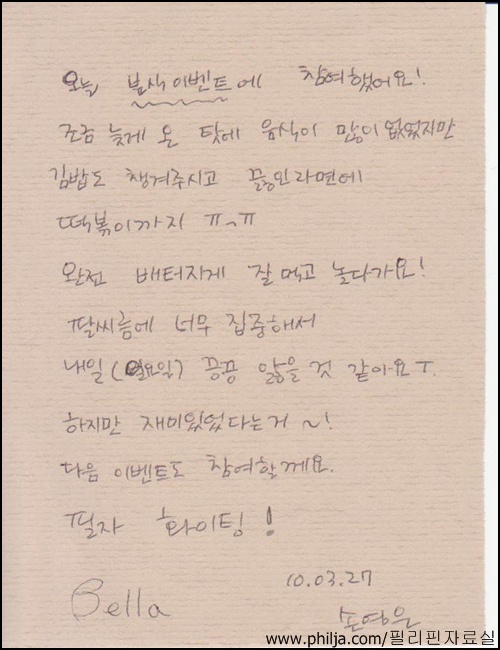 오늘 분식이벤트에 참여했어요!
조금 늦게 온 탓에 음식이 많이 없었지만
김밥도 챙겨주시고 끓인라면에
떡볶이까지 ㅠ~ㅠ
완전 배터지게 잘 먹고 놀다가요!
팔씨름에 너무 집중해서
내일(월요일) 끙끙 앓을 것 같아요ㅜ.
하지만 재미있었다는거 ~!
다음 이벤트도 참여할께요.
필자 화이팅!
10.03.27
Bella
손영은
www.philja.com/필리핀자료실